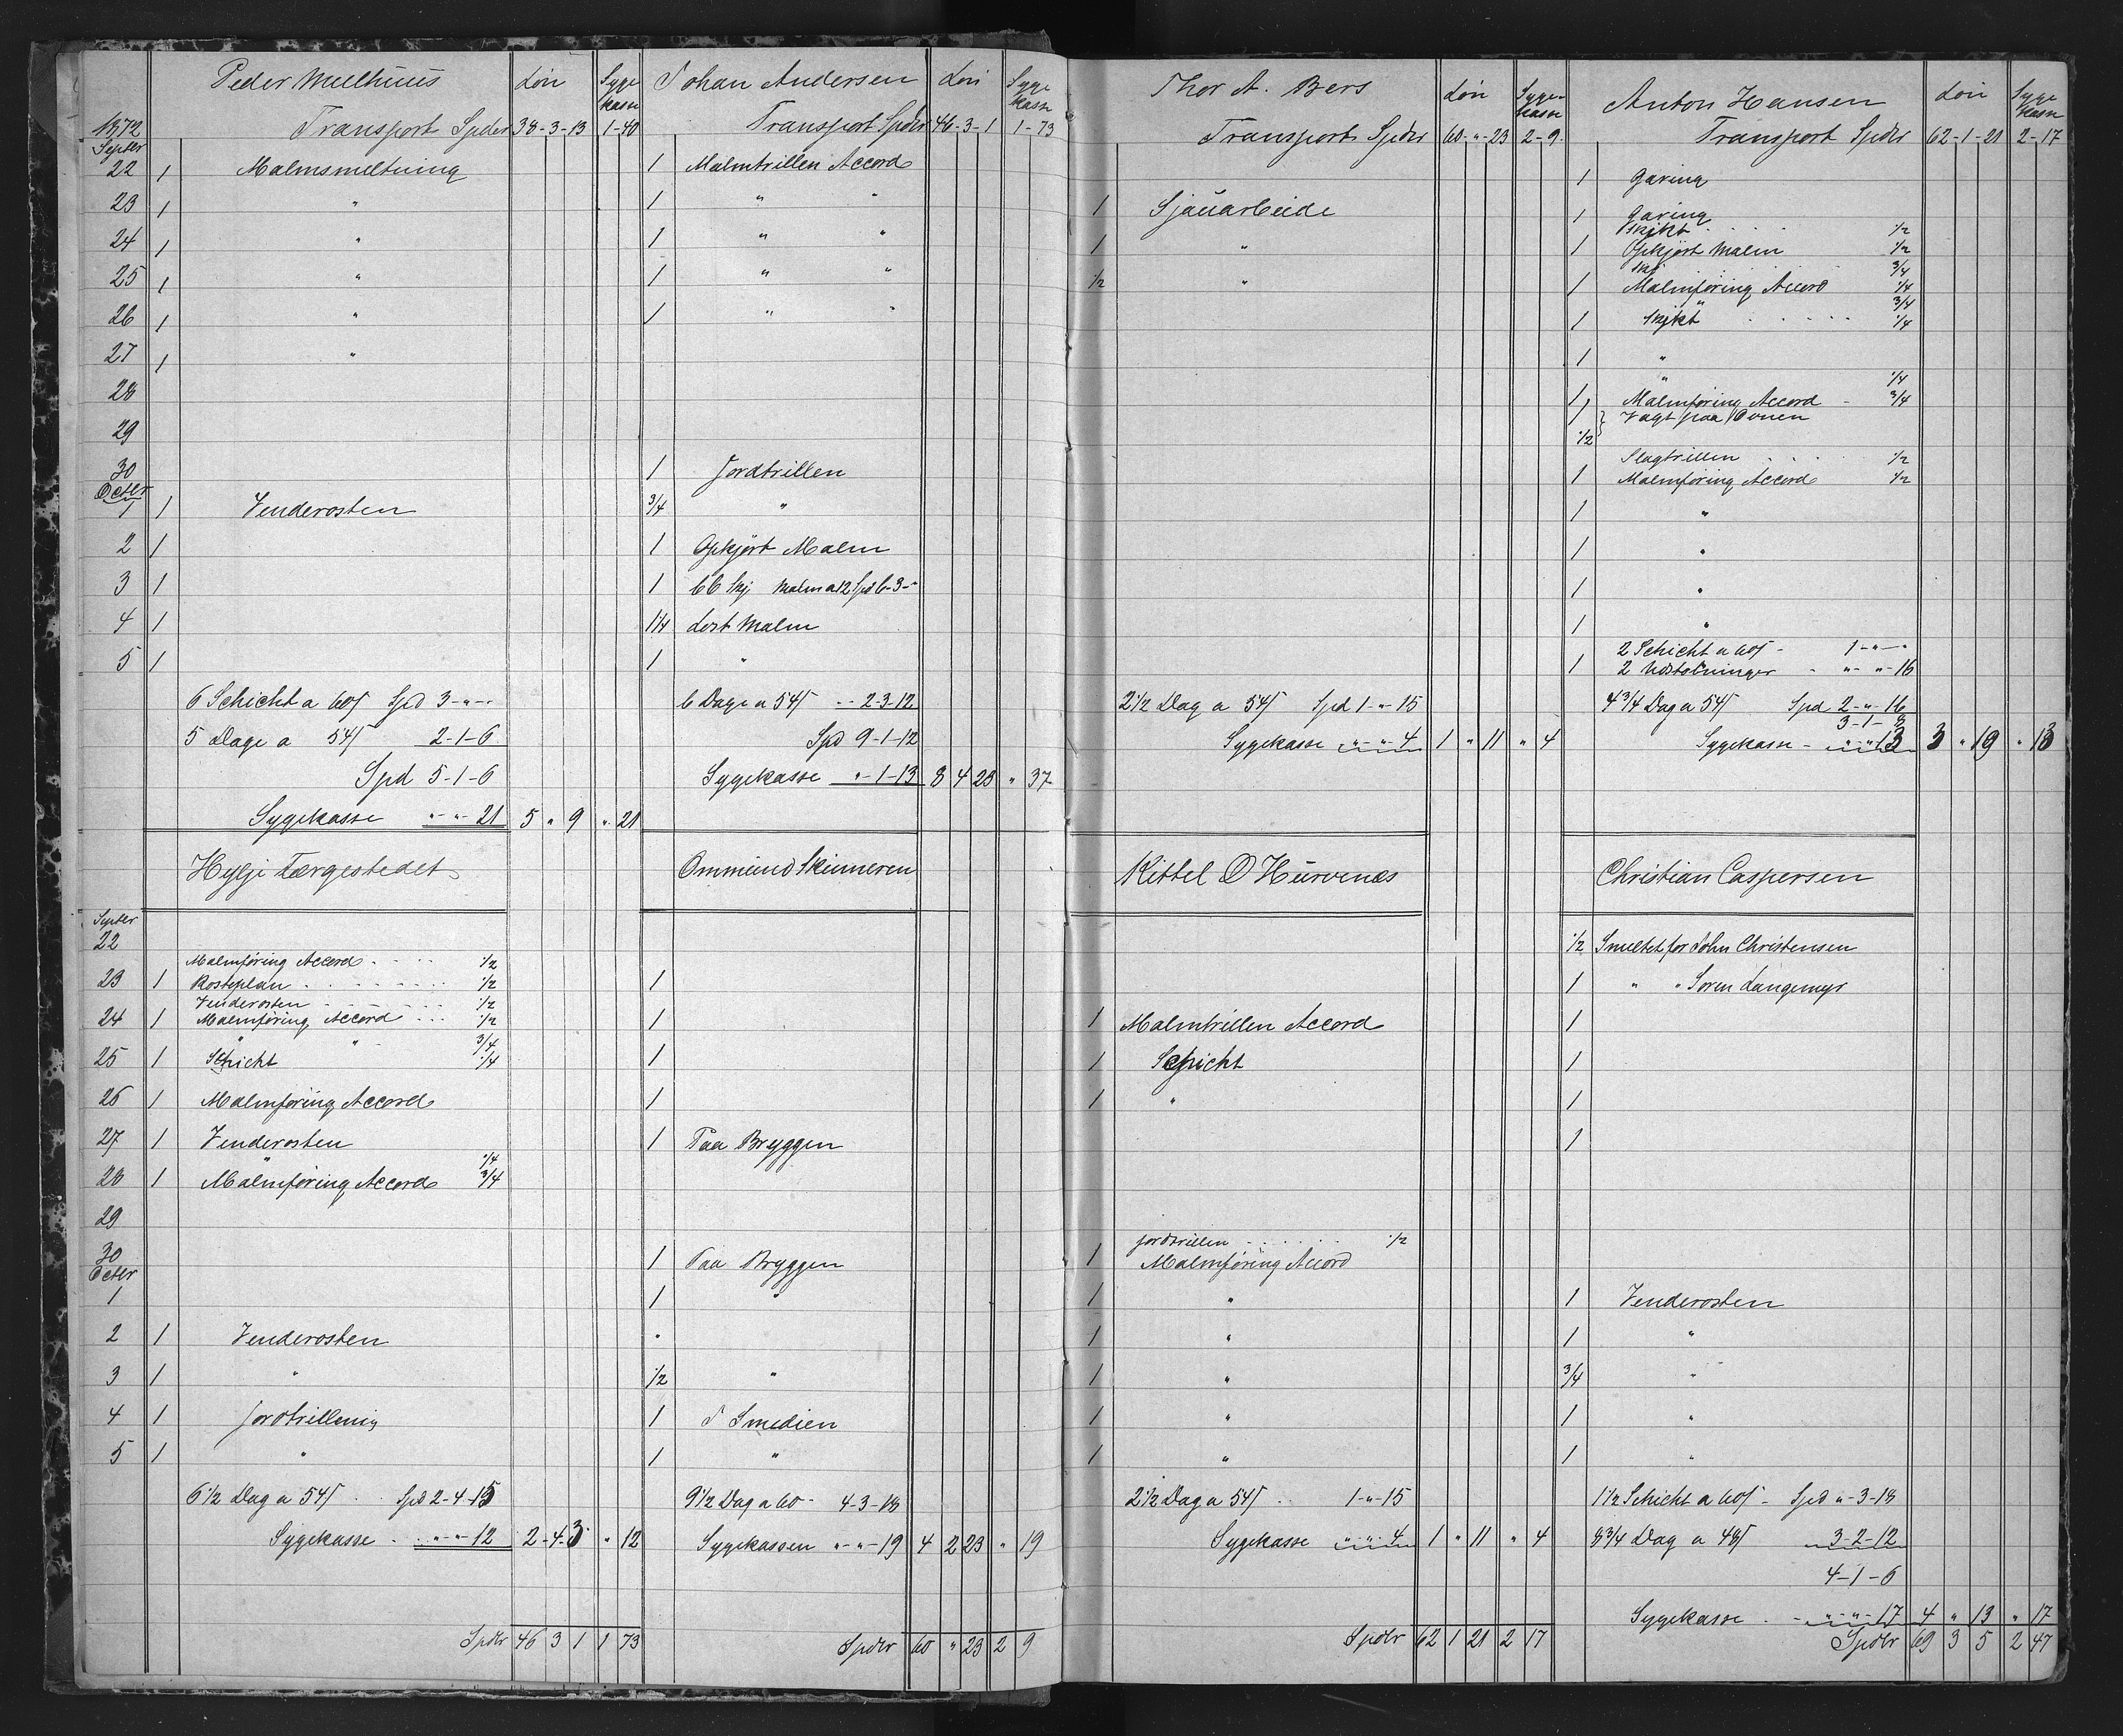 Peder Mælhuus Løn Syge kasse
1872 Transport Spdlr 38-3-13 1-40
Septbr
22 1 Malmsmeltning
23 1 "
24 1 "
25 1 "
26 1 "
27 1 "
28
29
30
Octbr
1 1 Venderosten
2 1
3 1
4 1
5 1
6 Schicht a 60ſ Spd 3-"-"
5 Dage a 54ſ 2-1-6
Spd 5-1-6
Sygekasse "-"-21 5 " 9 " 21
Hylje Tærgestedet
Septbr
22
Malmføring Accord 1/2
23 1 Rosteplan 1/2
Venderosten 1/2
24 1 Malmføring Accord 1/2
" " 3/4
25 1 Schicht 1/4
26 1 Malmføring Accord
27 1 Venderosten
" 1/4
28 1 Malmføring Accord 3/4
29
30
Octbr
1
2 1 Venderosten
3 1 "
4 1 Jordtrilling
5 1 "
6 1/2 Dag a 54ſ Spd 2-4-15
Sygekasse "-"-12 2-4-3 " 12
Spdlr 46 3 1 1 73
Johan Andersen Løn Syge kasse
Transport Spdlr 46-3-1 1-73
1 Malmtrillen Accord
1 " "
1 " "
1 " "
1 " "
1 Jordtrillen
3/4 "
1 Opkjørt Malm
1 66 Skj Malm a 12 Spd 6-3-"
1 1/4 Lost Malm
1 "
6 Dage a 54ſ 2-3-12
Spd 9-1-12
Sygekasse "-1-13 8 4 23 " 37
Ommund Skinneren
1
1
1
1
1 Paa Bryggen
1 Paa Bryggen
1 "
"
1/2 "
1 I Smedien
1 "
9 1/2 Dag a 60 4-3-18
Sygekassen "-"-19 4 2 23 " 19
Spdlr 60 " 23 2 9
Thor A. Bers Løn Syge kasse
Transport Spdlr 60-"-23 2-9
1 Sjauarbeide
1 "
1/2 "
2 1/2 Dag a 54ſ Spd 1-"-15
Sygekasse "-"-4 1 " 11 " 4
Kittel O Hurvenæs
1 Malmtrillen Accord
1 Schicht
1 "
Jordtrillen 1/2
1 Malmføring Accord
1 "
1 "
1 "
1 "
1 "
2 1/2 Dag a 54ſ 1-"-15
Sygekasse "-"-4 1 " 11 " 4
Spdlr 62 1 21 2 17
Anton Hansen Løn Syge kasse
Transport Spdlr 62-1-21 2-17
1 Garing
1 Garing
Skikt 1/2
1 Opkjørt Malm 1/2
Skj 3/4
1 Malmføring Accord 1/4
" 3/4
1 Skikt 1/4
1 "
" 1/4
1 Malmføring Accord 3/4
1 Vagt paa Ovnen
1/2
Slagtrillen 1/2
1 Malmføring Accord 1/2
1 "
1 "
1 "
1 "
2 Schicht a 60ſ 1-"-"
1 2 Udstøbninger "-"-16
4 3/4 Dag a 54ſ Spd 2-"-16
3-1-8
Sygekasse "-"-13 3 " 19 " 13
Christian Caspersen
1/2 Smeltet for John Christensen
1 " " Søren Langemyr
1
1
1
1
1 Venderosten
1 "
3/4 "
1 "
1 "
1 1/2 Schicht a 60ſ Spd "-3-18
8 3/4 Dag a 48ſ 3-2-12
4-1-6
Sygekasse "-"-17 4 " 13 " 17
Spdlr 69 3 5 2 47